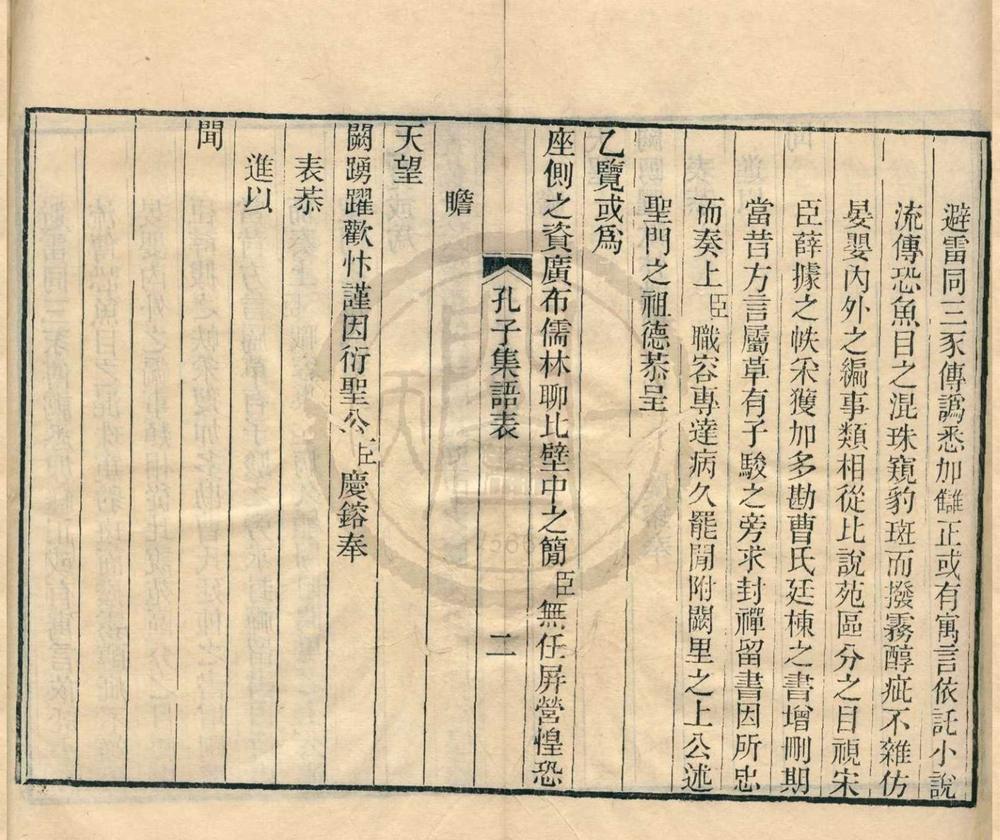 避雷同三家傳譌悉加讎正或有寓言依託小說
流傳恐魚目之混珠窺豹斑而撥霧醇疵不雜仿
晏嬰內外之編事類相從比說苑區分之目視宋
臣薛據之帙采獲加多勘曹氏廷棟之書增刪期
當昔方言屬草有子駿之旁求封禪留書因所忠
而奏上臣職容專達病久罷閒附闕里之上公述
聖門之祖德恭呈
乙覽或爲
座側之資廣布儒林聊比壁中之簡臣無任屏營惶恐
孔子集語表 二
瞻
天望
闕踴躍歡忭謹因衍聖公臣慶鎔奉
表恭
進以
聞